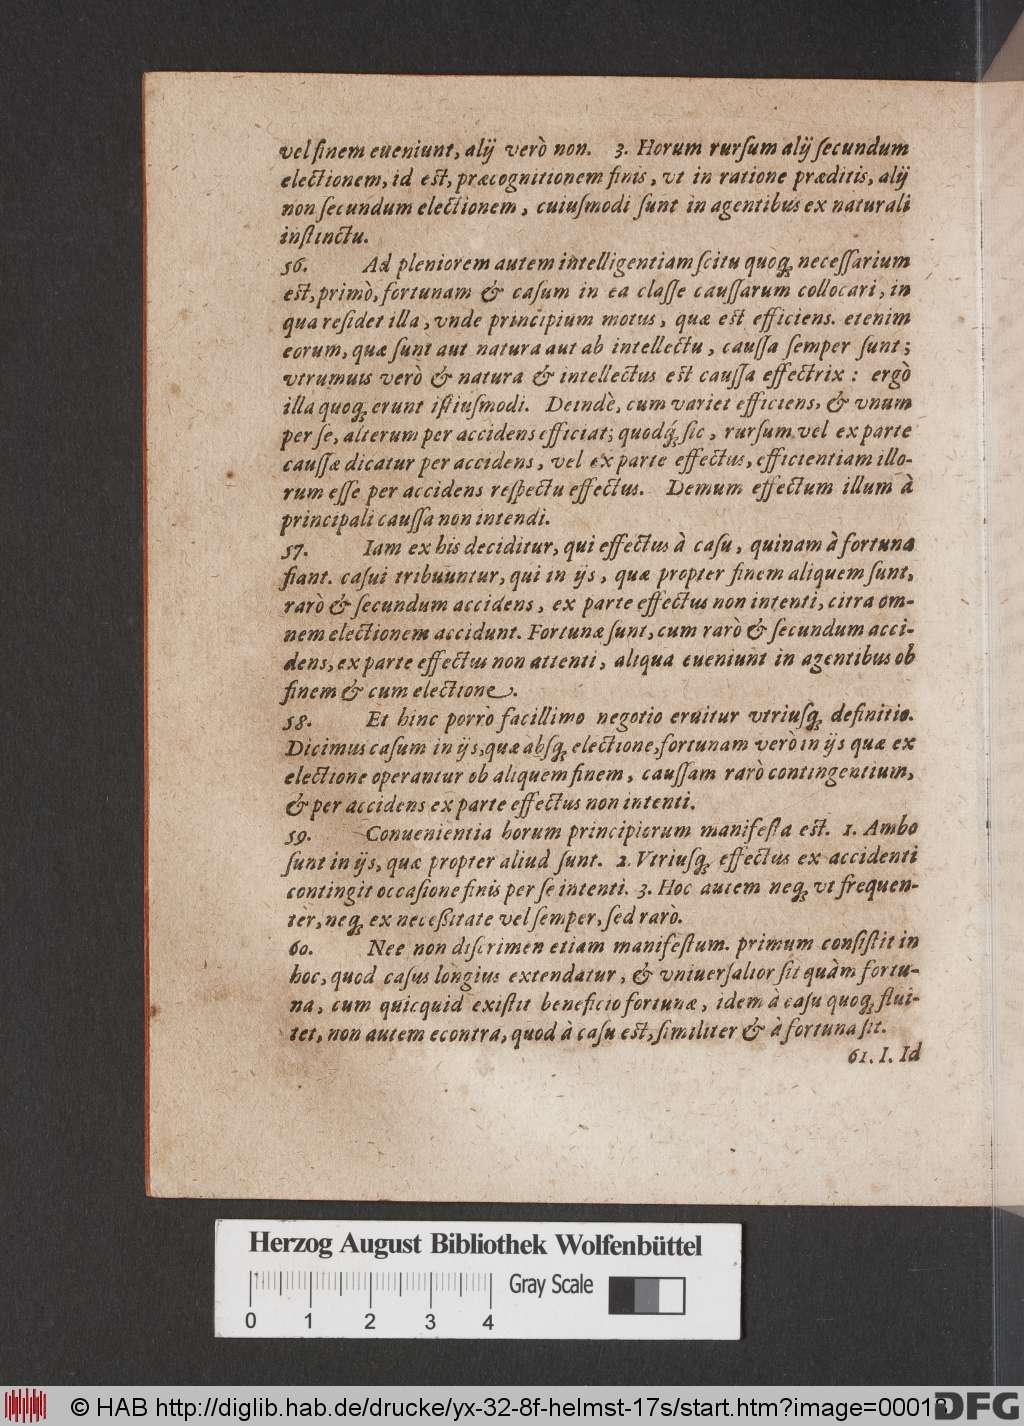 vel finem eueniunt, alij verò non. 3. Horum rurſum alij ſecundum
electionem, id eſt, præcognitionem finis, vt in ratione præditis, alij
non ſecundum electionem, cuiuſmodi ſunt in agentibus ex naturali
inſtinctu.
56. Ad pleniorem autem intelligentiam ſcitu quoq; neceſſarium
eſt, primò, fortunam & caſum in ea claſſe cauſſarum collocari, in
qua reſidet illa, vnde principium motus, quæ eſt efficiens. etenim
eorum, quæ ſunt aut natura aut ab intellectu, cauſſa ſemper ſunt;
vtrumuis verò & natura & intellectus eſt cauſſa effectrix: ergò
illa quoq; erunt iſtiuſmodi. Deindè, cum variet efficiens, & vnum
per ſe, alterum per accidens efficiat; quodq́; ſic, rurſum vel ex parte
cauſſæ dicatur per accidens, vel ex parte effectus, efficientiam illo-
rum eſſe per accidens reſpectu effectus. Demum effectum illum à
principali cauſſa non intendi.
57. Iam ex his deciditur, qui effectus à caſu, quinam à fortuna
fiant. caſui tribuuntur, qui in ijs, quæ propter finem aliquem ſunt,
rarò & ſecundum accidens, ex parte effectus non intenti, citra om-
nem electionem accidunt. Fortunæ ſunt, cum rarò & ſecundum acci-
dens, ex parte effectus non attenti, aliqua eueniunt in agentibus ob
finem & cum electione.
58. Et hinc porrò facillimo negotio eruitur vtriuſq; definitio.
Dicimus caſum in ijs, quæ abſq; electione, fortunam verò in ijs quæ ex
electione operantur ob aliquem finem, cauſſam rarò contingentium,
& per accidens ex parte effectus non intenti.
59. Conuenientia horum principiorum manifeſta eſt. 1. Ambo
ſunt in ijs, quæ propter aliud ſunt. 2. Vtriuſq; effectus ex accidenti
contingit occaſione finis per ſe intenti. 3. Hoc autem neq; vt frequen-
tèr, neq; ex neceßitate vel ſemper, ſed rarò.
60. Nec non diſcrimen etiam manifeſtum. primum conſiſtit in
hoc, quod caſus longius extendatur, & vniuerſalior ſit quàm fortu-
na, cum quicquid exiſtit beneficio fortunæ, idem à caſu quoq; flui-
tet, non autem econtra, quod à caſu eſt, ſimiliter & à fortuna ſit.
61. I. Id
Herzog August Bibliothek Wolfenbüttel
Gray Scale
0 1 2 3 4
© HAB http://diglib.hab.de/drucke/yx-32-8f-helmst-17s/start.htm?image=00013
DFG